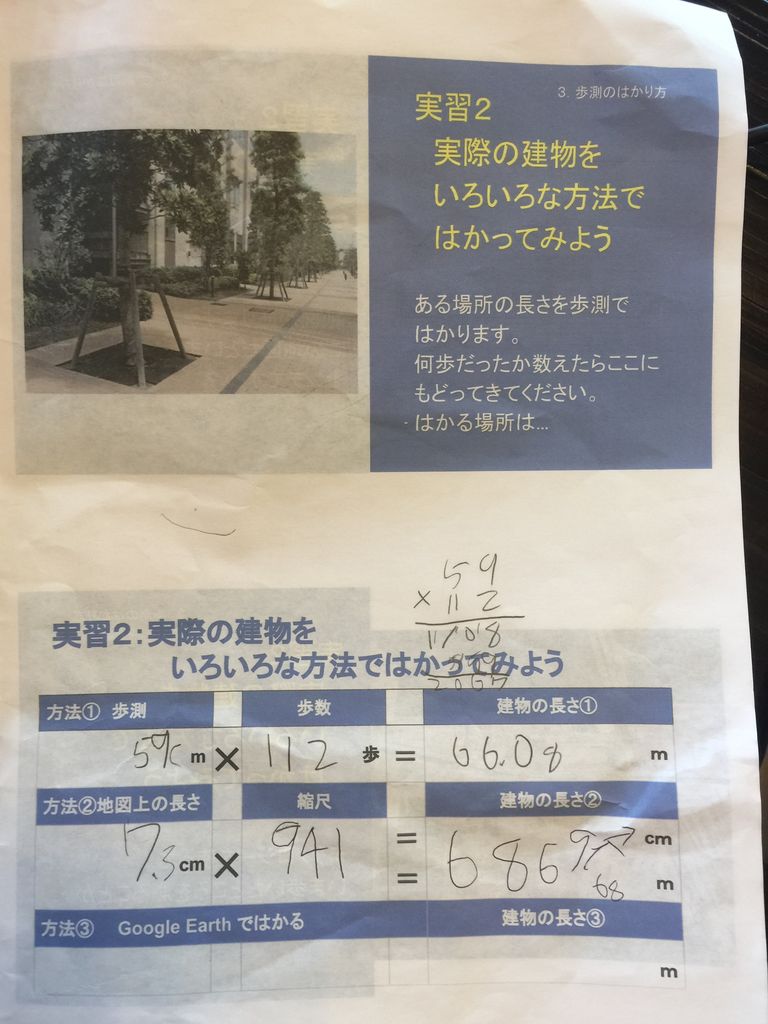 3. 歩測のはかり方
実習2
実際の建物を
いろいろな方法で
はかってみよう
ある場所の長さを歩測で
はかります。
何歩だったか数えたらここに
もどってきてください。
はかる場所は...
59
× 112
実習2:実際の建物を
いろいろな方法ではかってみよう
方法① 歩測 歩数 建物の長さ①
59c m × 112 歩 = 66.08 m
方法②地図上の長さ 縮尺 建物の長さ②
7.3 cm × 941 = 6869 cm
= 68 m
方法③ Google Earth ではかる 建物の長さ③
m